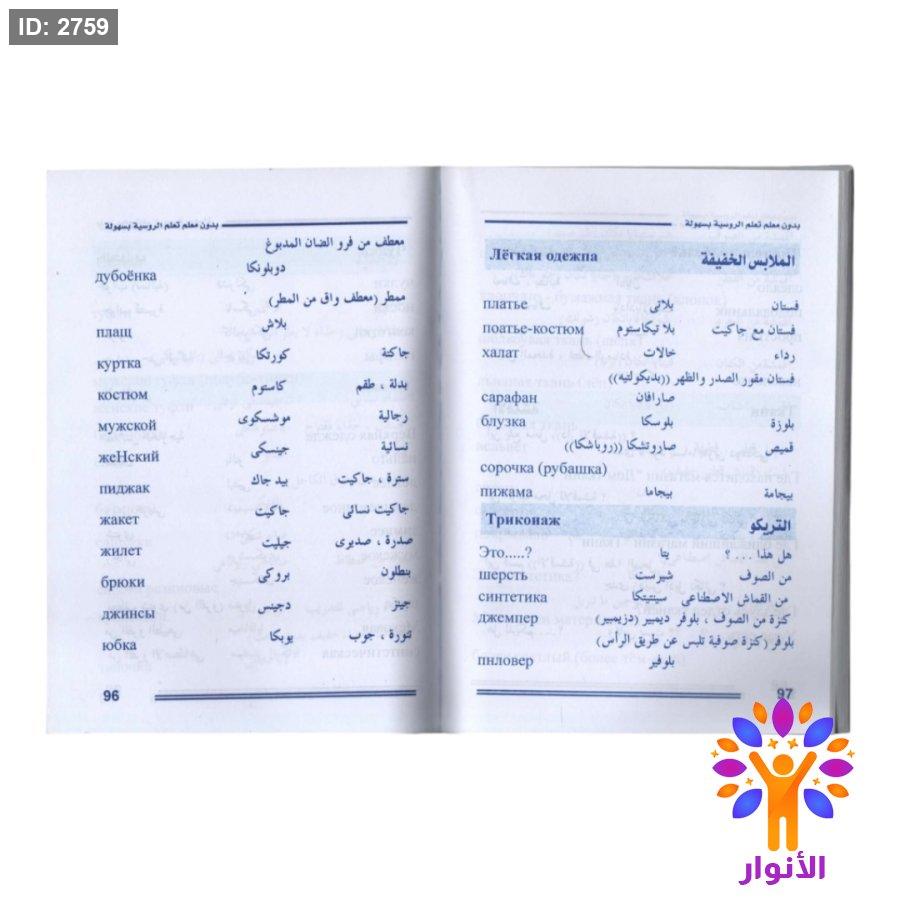 ID: 2759
بدون معلم تعلم الروسية بسهولة
معطف من فرو الضان المدبوغ
дубоёнка دوبلونكا
ممطر (معطف واق من المطر)
плащ بلاش
куртка كورتكا جاكتة
костюм كاستوم بدلة ، طقم
мужской موشسكوى رجالية
жеНский جينسكى نسائية
пиджак بيد جاك سترة ، جاكيت
жакет جاكيت جاكيت نسائى
жилет جيليت صدرة ، صديرى
брюки بروكى بنطلون
джинсы دجينس جينز
юбка يوبكا تنورة ، جوب
96
بدون معلم تعلم الروسية بسهولة
Лёгкая одежпа الملابس الخفيفة
платье بلاتى فستان
поатье-костюм بلا تيكاستوم فستان مع جاكيت
халат خالات رداء
فستان مقور الصدر والظهر ((بديكولتيه))
сарафан صارافان
блузка بلوسكا بلوزة
قميص صاروتشكا ((روباشكا))
сорочка (рубашка)
пижама بيجاما بيجامة
Триконаж التريكو
Это.....? يتا هل هذا . . . ؟
шерсть شيرست من الصوف
синтетика سينتيتكا من القماش الاصطناعى
джемпер كنزة من الصوف ، بلوفر ديمبير (دزيمبير)
بلوفر (كنزة صوفية تلبس عن طريق الرأس)
пнловер بلوفير
97
الأنوار